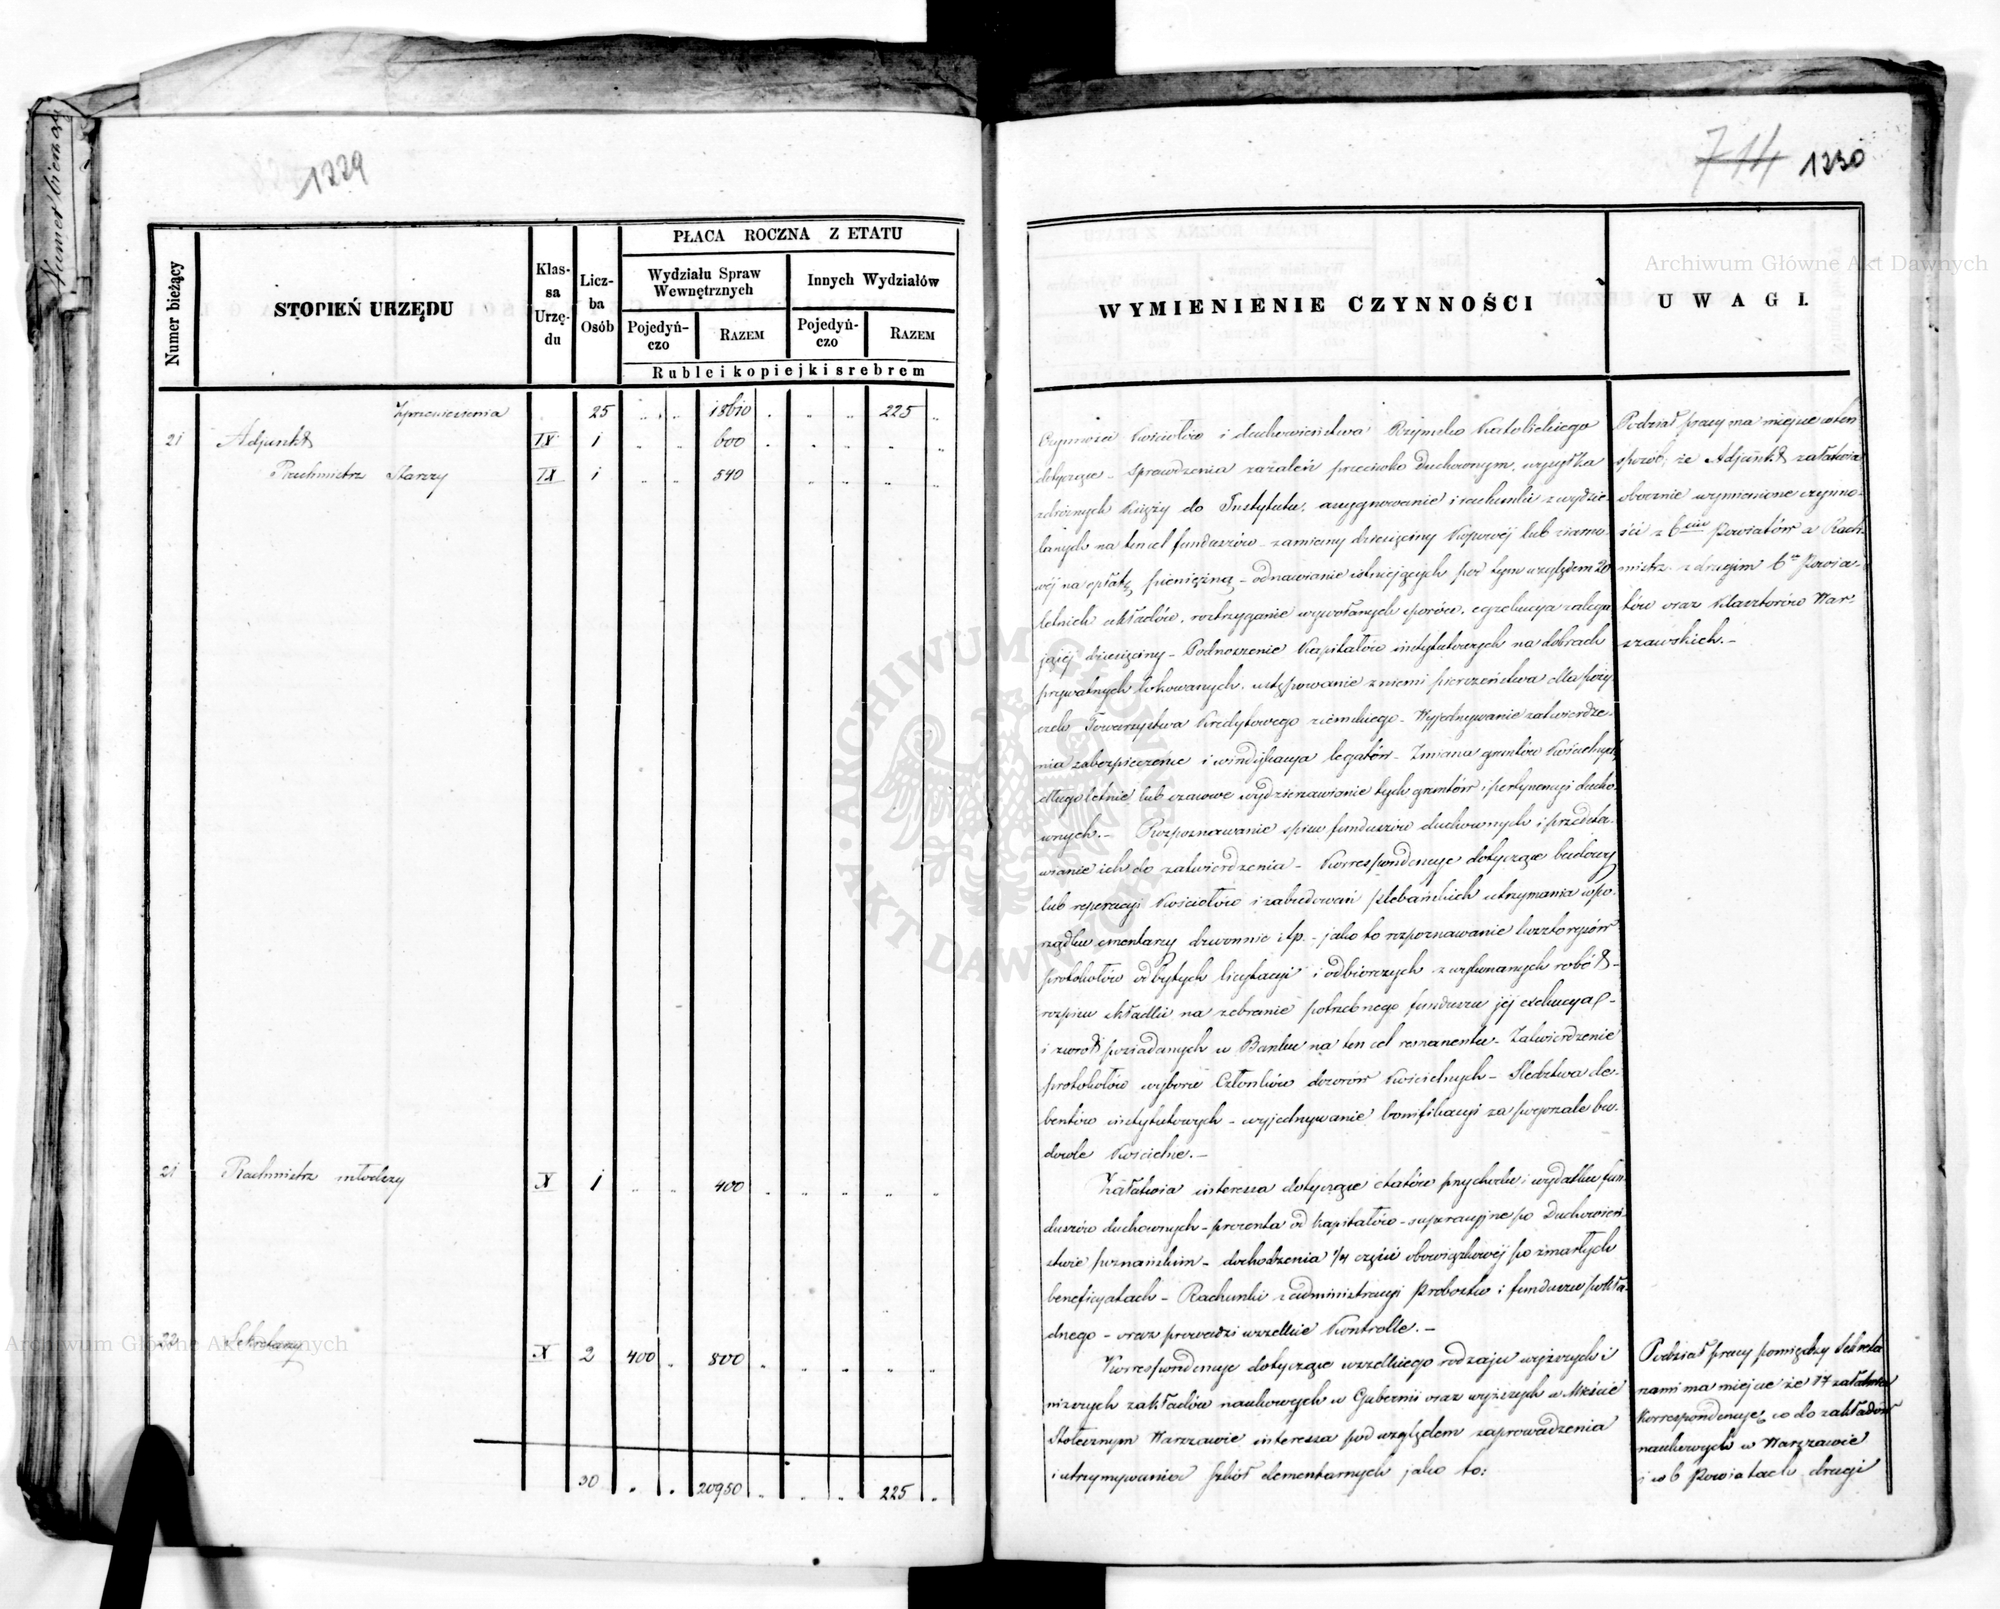 Numer bieżący
1229
Numer bieżący
STOPIEŃ URZĘDU
Klas-
sa
Urzę-
du
Licz-
ba
Osób
PŁACA ROCZNA Z ETATU
Wydziału Spraw
Wewnętrznych
Innych Wydziałów
Pojedyń-
czo
RAZEM
Pojedyń-
czo
RAZEM
Ruble i kopiejki srebrem
Zprzeniesienia 25 18610 225
21 Adjunkt IX 1 600
Rachmistrz Starszy IX 1 540
21 Rachmistrz młodszy X 1 400
22 Sekretarzy X 2 400 800
30 20950 225
714 1230
WYMIENIENIE CZYNNOŚCI
UWAGI.
Czynności Kościołów i duchowieństwa Rzymsko Katolickiego
dotyczące - Sprawdzenia zażaleń przeciwko Duchownym, wysyłka
zdrożnych Księży do Instytutu, assygnowanie i rachunki z wydzie-
lanych na ten cel funduszów - zamiany dziesięciny Kopowéj lub ziarno-
wéj na opłatę pieniężną - odnawianie istniejących pod tym względem 20
letnich układów, roztrzyganie wywołanych sporów, egzekucya zalega
jącéj dziesięciny - Podnoszenie Kapitałów instytutowych na dobrach
prywatnych lokowanych, ustępowanie z niemi pierszeństwa dla poży
czek Towarzystwa Kredytowego ziemskiego - Wyjednywanie zatwierdze-
nia zabezpieczenie i windykacya legatów - Zmiana gruntów Kościelnych
długo letnie lub czasowe wydzierzawianie tych gruntów i pertynencyi ducho-
wnych. - Rozpoznawanie spisu funduszów duchownych i przedsta-
wianie ich do zatwierdzenia - Korrespondencye dotyczące budowy
lub reperacyi Kościołów i zabudowań plebańskich utrzymania w po-
rządku cmentarzy dzwonnic itp. - jako to rozpoznawanie kosztorysów
protokołów odbytych licytacyi i odbiorczych z wykonanych robót -
rozpisu składki na zebranie potrzebnego funduszu jej exekucya -
i zwrot posiadanych w Banku na ten cel remanentu - Zatwierdzenie
protokołów wyboru Członków dozorów Kościelnych - Śledztwa de-
bentów instytutowych - wyjednywanie bonifikacyi za pogorzałe bu-
dowle Kościelne. -
Załatwia interessa dotyczące etatów przychodu i wydatku fun-
duszów duchownych - procenta od kapitałów - supracyjne po Duchowień-
stwie poznańskim - dochodzenia 1/4 części obowiązkowéj po zmarłych
beneficyatach - Rachunki z administracyi Probostw i funduszu pokła-
dnego - oraz prowadzi wszelkie Kontrolle. -
Korrespondencye dotyczące wszelkiego rodzaju wyższych i
niższych zakładów naukowych w Gubernii oraz wyższych w Mieście
Stołecznym Warszawie interessa pod względem zaprowadzenia
i utrzymywania szkół elementarnych jako to:
Podział pracy ma miejsce w ten
sposób, że Adjunkt załatwia
obocznie wymienione czynno-
ści z 6ciu Powiatów a Rach-
mistrz z drugim 6u Powia-
tów oraz Klasztorów War-
szawskich. -
Podział pracy pomiędzy Sekreta
rzami ma miejsce że 1y załatwia
Korrespondencye co do zakładów
naukowych w Warszawie
i w 6 Powiatach drugi
Archiwum Główne Akt Dawnych
Archiwum Główne Akt Dawnych
ARCHIWUM GŁÓWNE AKT DAWNYCH